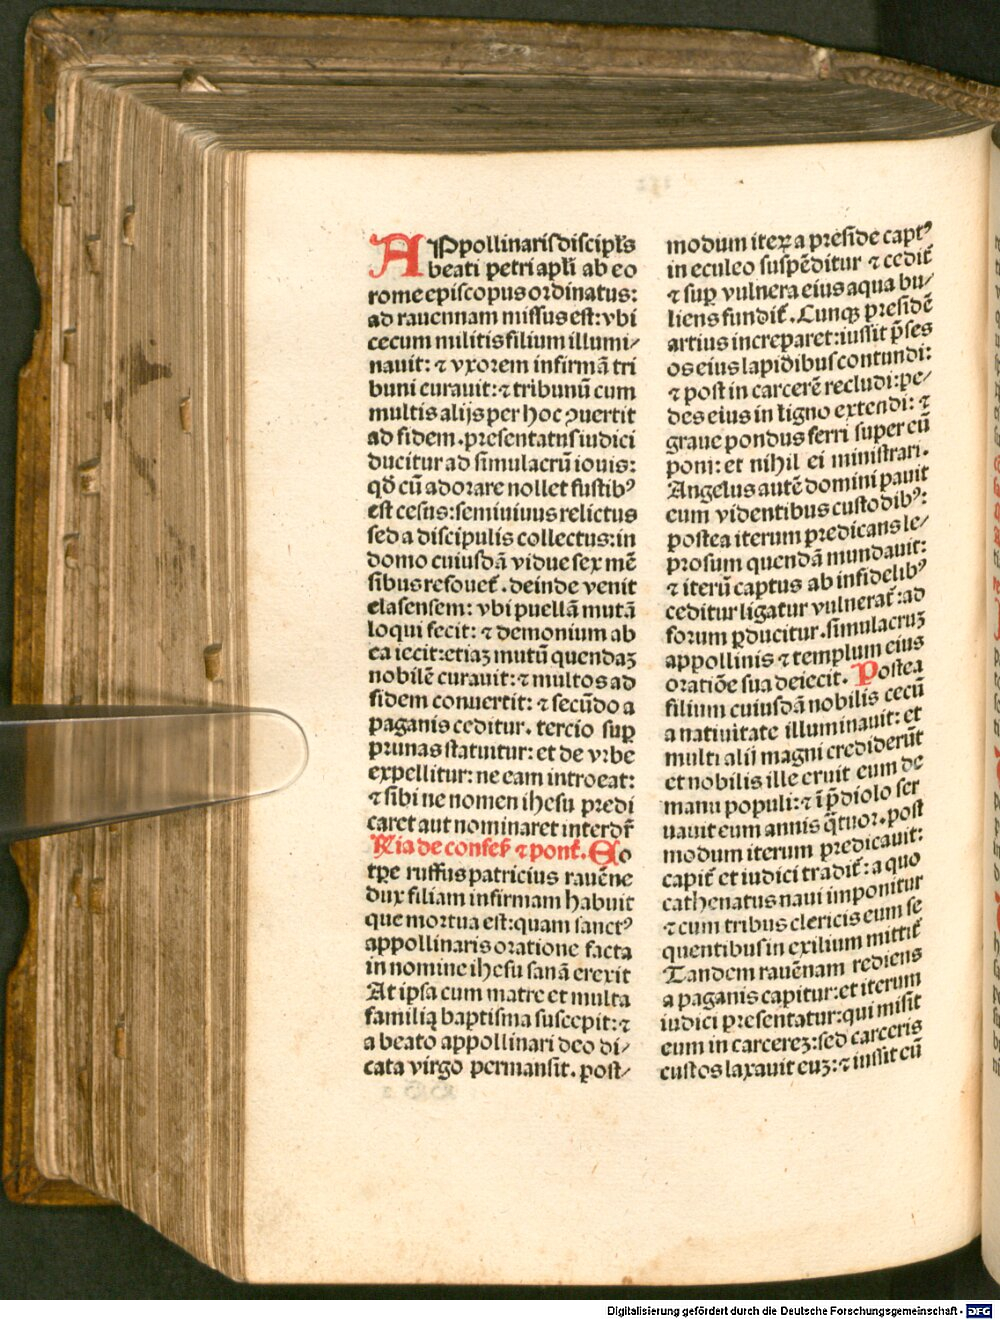 APpollinaris discipl̄s
beati petri apl̄i ab eo
rome episcopus ordinatus:
ad rauennam missus est: vbi
cecum militis filium illumi⸗
nauit: ⁊ vxorem infirmā tri
buni curauit: ⁊ tribunū cum
multis alijs per hoc ꝯuertit
ad fidem. presentatus iudici
ducitur ad simulacrū iouis:
qd̄ cū adorare nollet fustibꝰ
est cesus: semiuiuus relictus
sed a discipulis collectus: in
domo cuiusdā vidue sex mē
sibus resouet᷑. deinde venit
elasensem: vbi puellā mutā
loqui fecit: ⁊ demonium ab
ea iecit: etiaꝫ mutū quendaꝫ
nobilē curauit: ⁊ multos ad
fidem conuertit: ⁊ secūdo a
paganis ceditur. tercio suꝑ
prunas statuitur: et de vrbe
expellitur: ne eam introeat:
⁊ sibi ne nomen ihesu predi
caret aut nominaret interdr̄
Ria de confes̄ ⁊ pont᷑. Eo
tꝑe ruffus patricius rauēne
dux filiam infirmam habuit
que mortua est: quam sanctꝰ
appollinaris oratione facta
in nomine ihesu sanā erexit
At ipsa cum matre et multa
familia baptisma suscepit: ⁊
a beato appollinari deo di⸗
cata virgo permansit. post⸗
modum iteꝝ a preside captꝰ
in eculeo suspēditur ⁊ cedit᷑
⁊ suꝑ vulnera eius aqua bu⸗
liens fundit᷑. Cunqꝫ presidē
artius increparet: iussit p̄ses
os eius lapidibus contundi:
⁊ post in carcerē recludi: pe⸗
des eius in ligno extendi: ⁊
graue pondus ferri super eū
poni: et nihil ei ministrari.
Angelus autē domini pauit
eum videntibus custodibꝰ:
postea iterum predicans le⸗
prosum quendā mundauit:
⁊ iterū captus ab infidelibꝰ
ceditur ligatur vulnerat᷑: ad
forum ꝑducitur. simulacruꝫ
appollinis ⁊ templum eius
oratiōe sua deiecit. Postea
filium cuiusdā nobilis cecū
a natiuitate illuminauit: et
multi alij magni crediderūt
et nobilis ille eruit eum de
manu populi: ⁊ ī p̄diolo ser
uauit eum annis q̄tuor. post
modum iterum predicauit:
capit᷑ et iudici tradit᷑: a quo
cathenatus naui imponitur
⁊ cum tribus clericis eum se
quentibus in exilium mittit᷑
Tandem rauēnam rediens
a paganis capitur: et iterum
iudici presentatur: qui misit
eum in carcereꝫ: sed carceris
custos laxauit euꝫ: ⁊ iussit eū
Digitalisierung gefördert durch die Deutsche Forschungsgemeinschaft - DFG